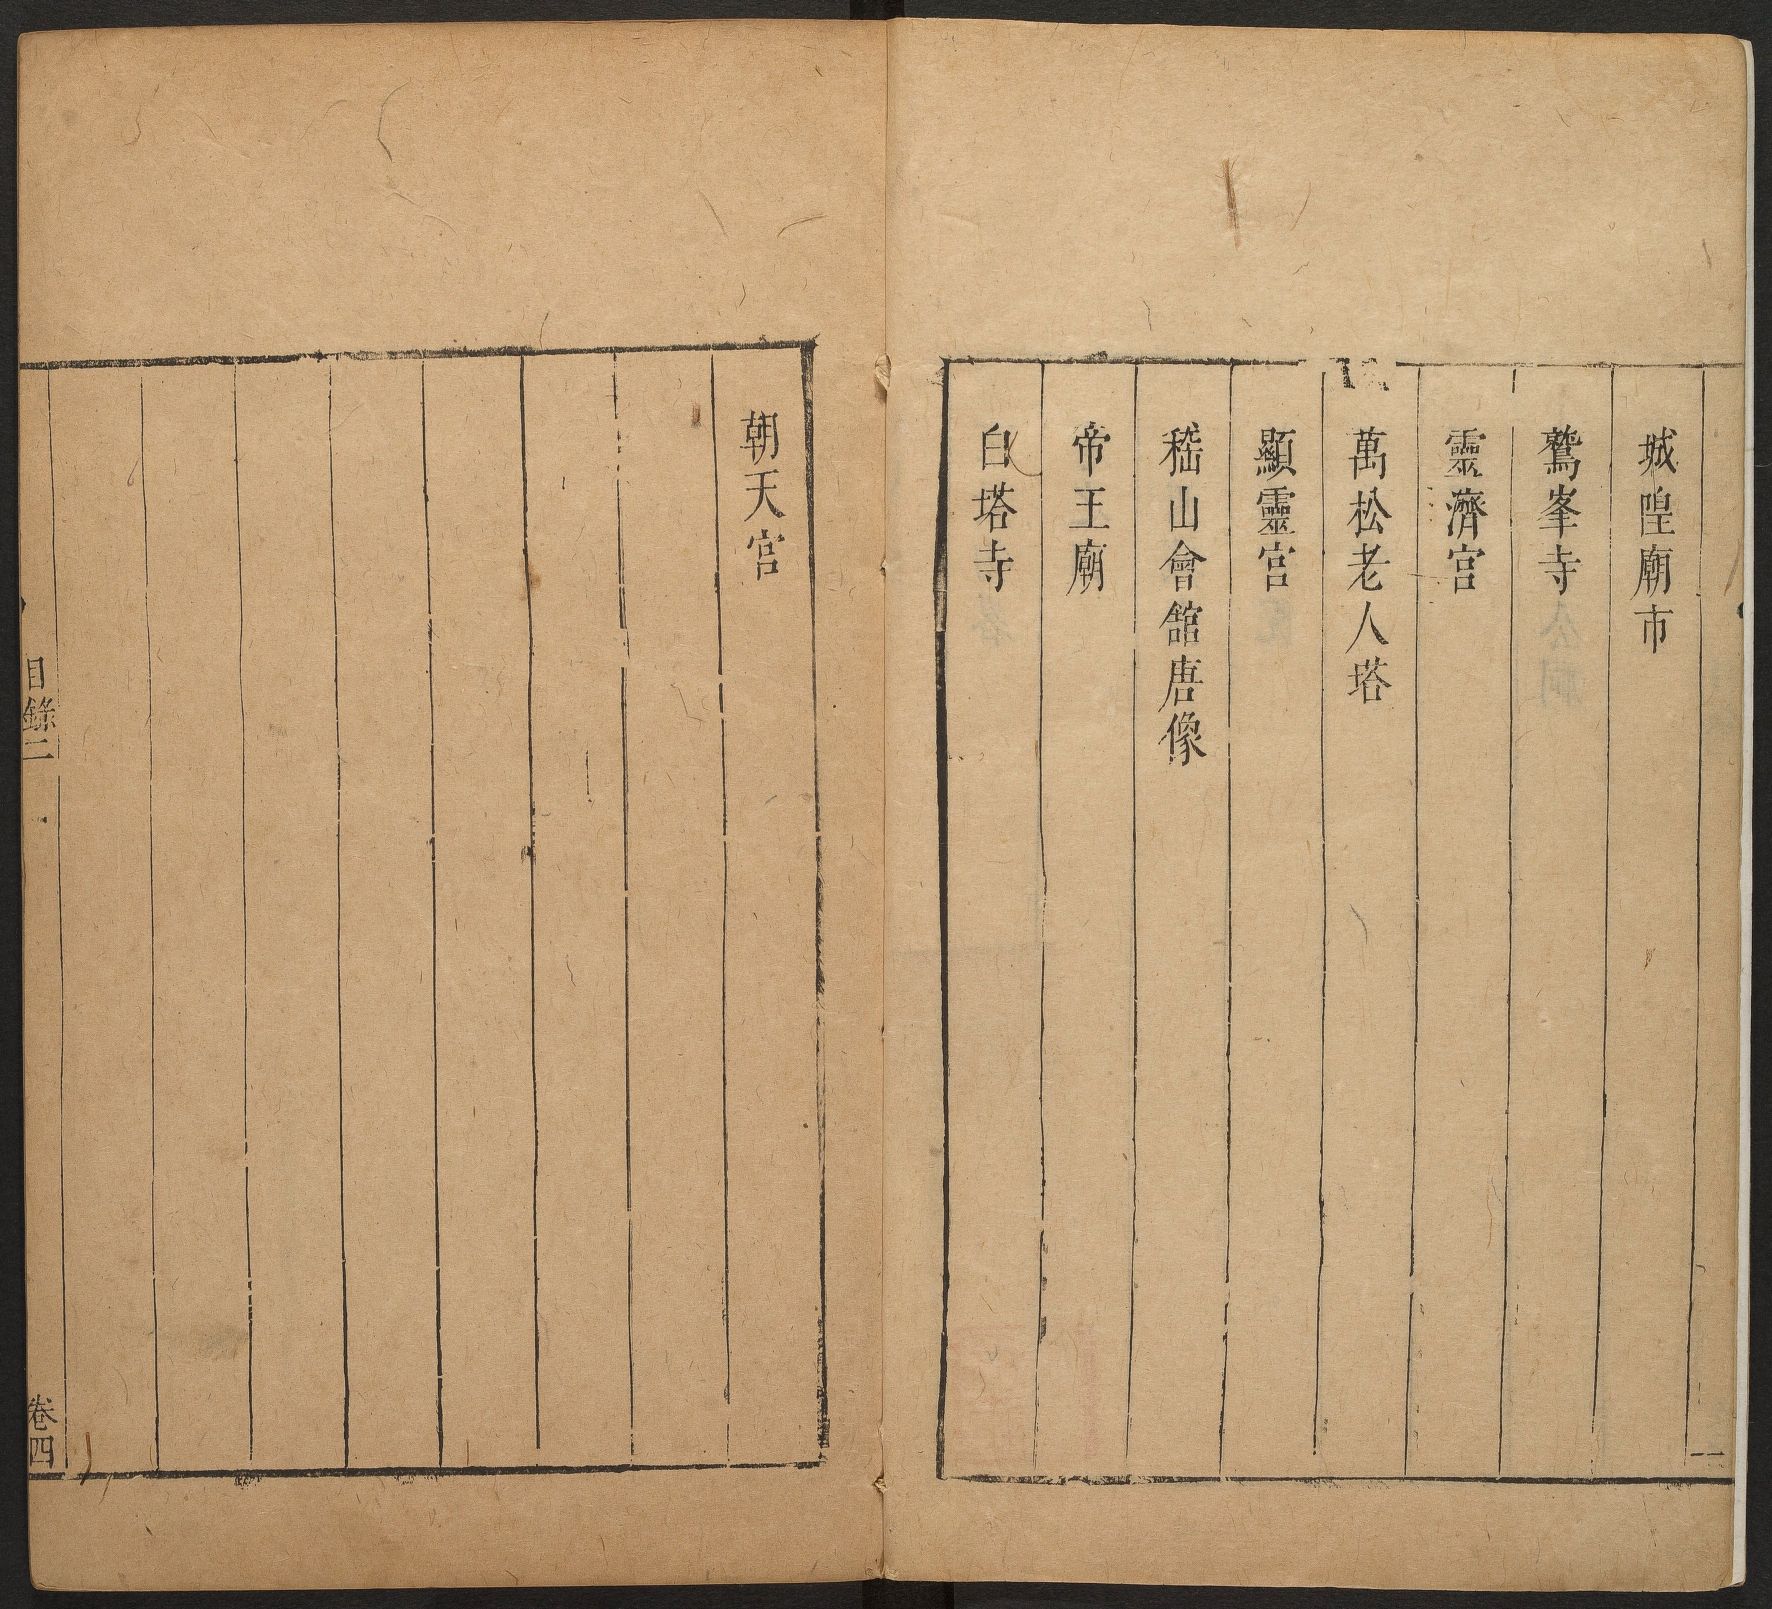 城隍廟市
鷲峯寺
靈濟宫
萬松老人塔
顯靈宫
嵇山會舘唐像
帝王廟
白塔寺
朝天宫
目錄二
卷四